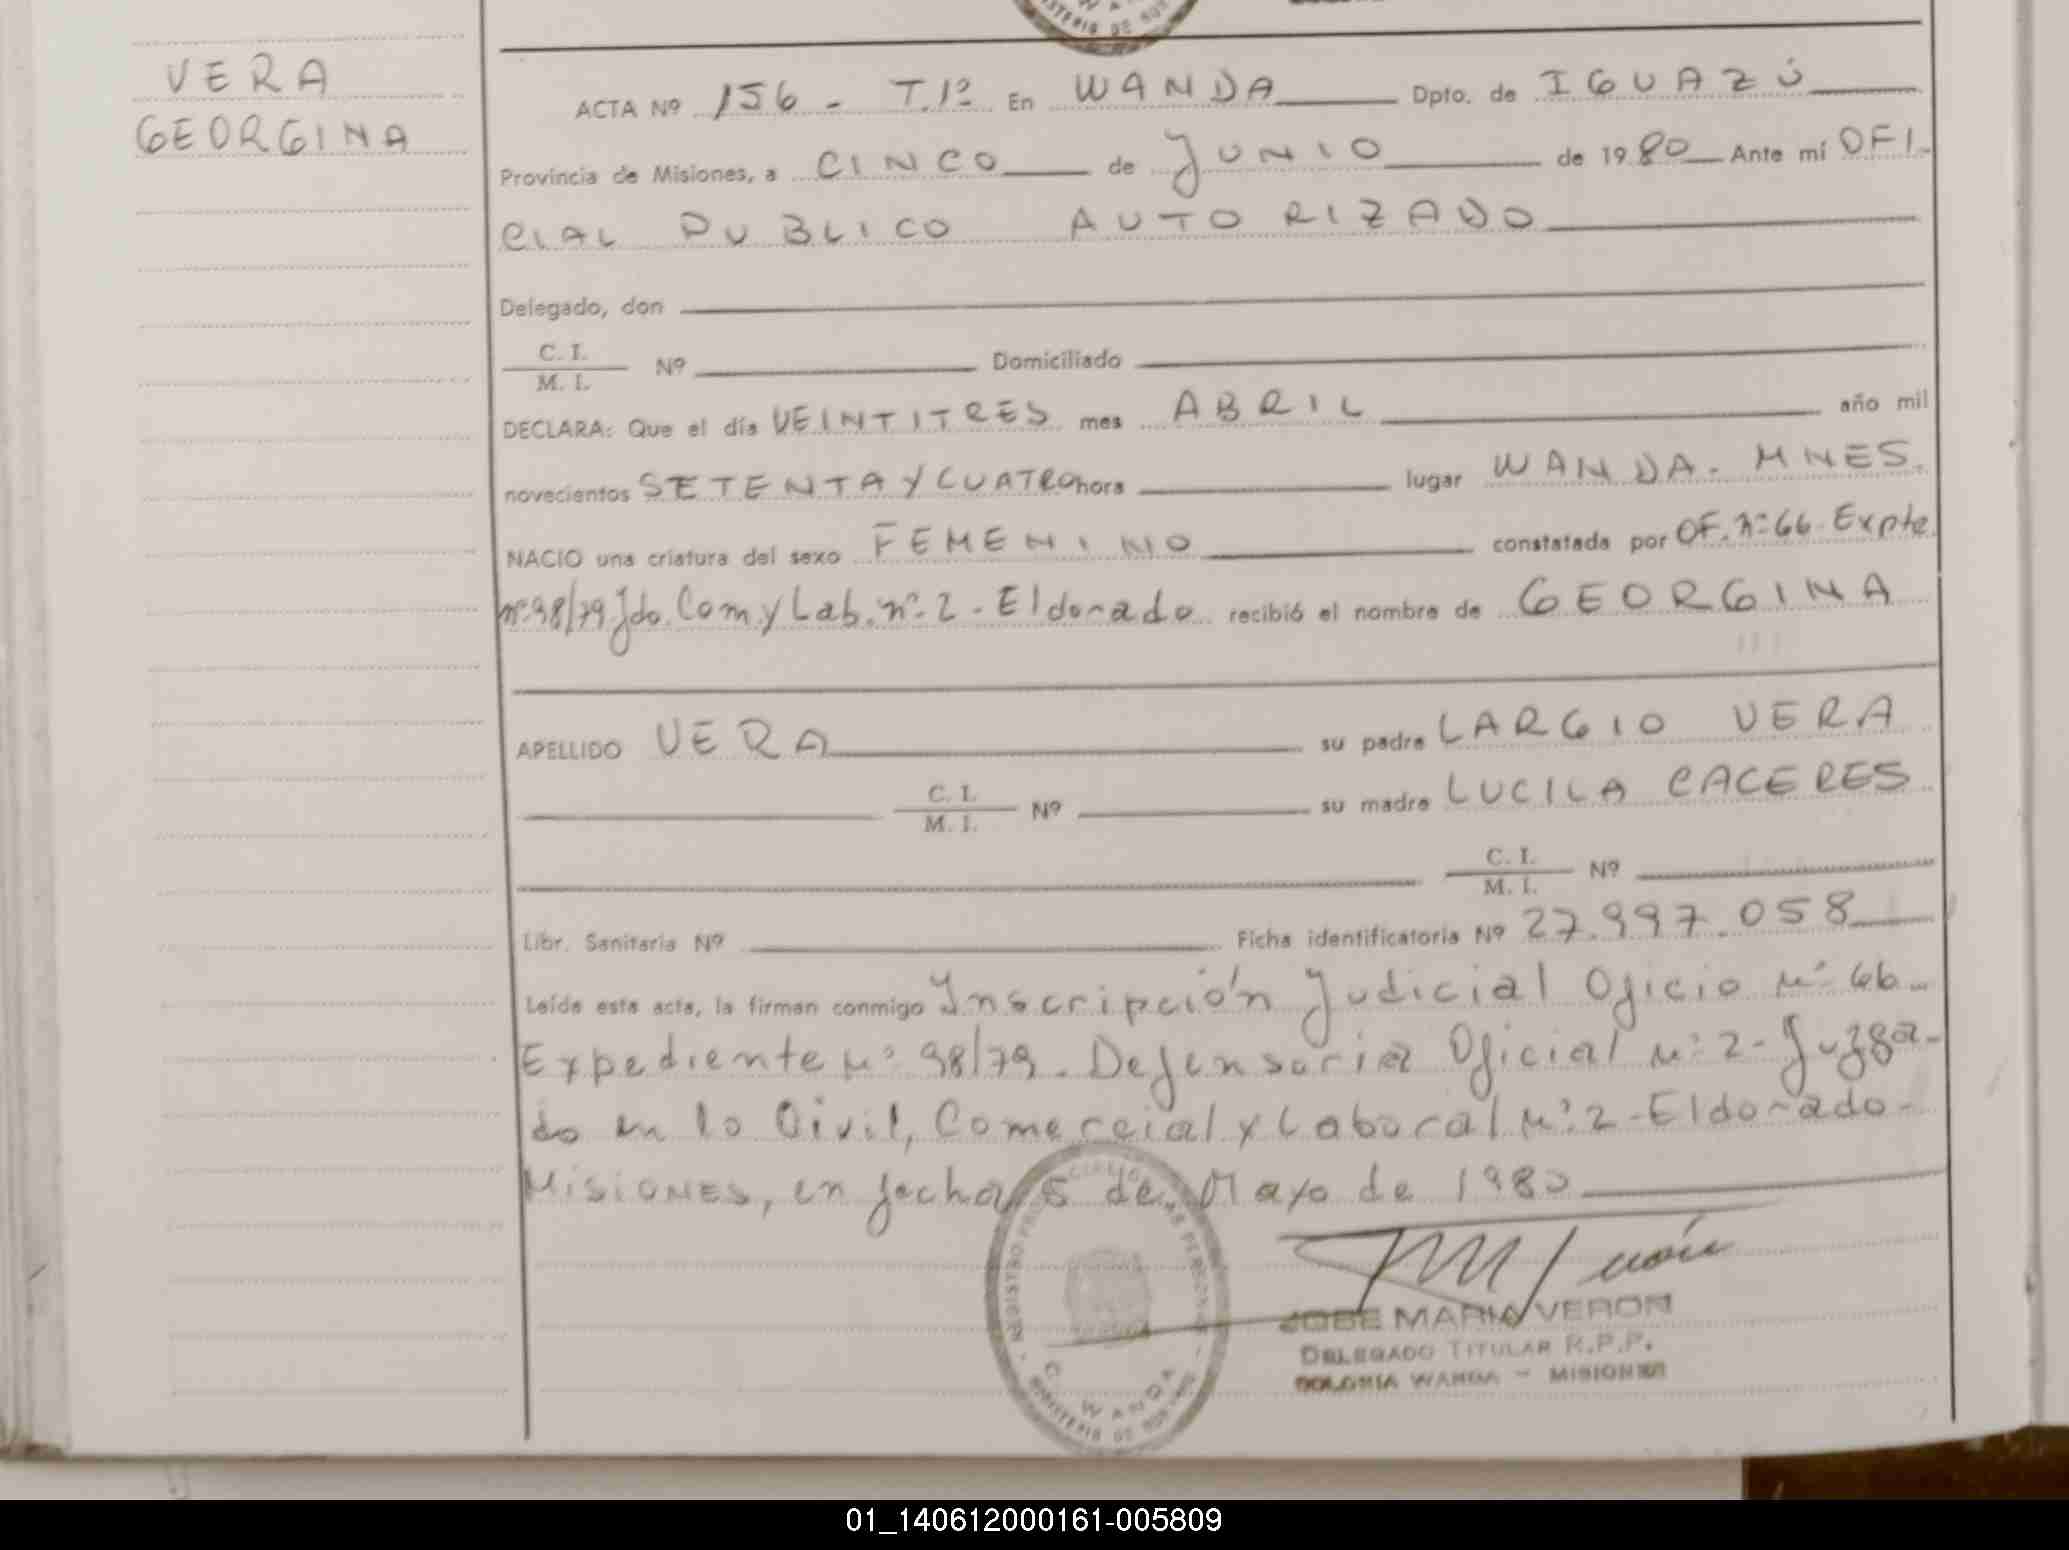 VERA
GEORGINA
ACTA Nº 156 - T.1º En WANDA Dpto. de IGUAZÚ
Provincia de Misiones, a CINCO de JUNIO de 1980 Ante mí OFI-
CIAL PUBLICO AUTORIZADO
Delegado, don
C. I.
M. I. Nº Domiciliado
DECLARA: Que el día VEINTITRES mes ABRIL año mil
novecientos SETENTA Y CUATRO hora lugar WANDA. MNES.
NACIO una criatura del sexo FEMENINO constatada por OF. nº 66. Expte
nº 98/79 Jdo. Com. y Lab. nº 2 - Eldorado recibió el nombre de GEORGINA
APELLIDO VERA su padre LARGIO VERA
C. I.
M. I. Nº su madre LUCILA CACERES
C. I.
M. I. Nº
Libr. Sanitaria Nº Ficha identificatoria Nº 27.997.058
Leída esta acta, la firman conmigo Inscripción Judicial Oficio Nº 66-
Expediente Nº 98/79. Defensoria Oficial Nº 2 - Juzga-
do en lo Civil, Comercial y Laboral Nº 2 - Eldorado -
Misiones, en fecha 5 de Mayo de 1980
JOSE MARIA VERON
DELEGADO TITULAR R.P.P.
COLONIA WANDA - MISIONES
C. WANDA
01_140612000161-005809